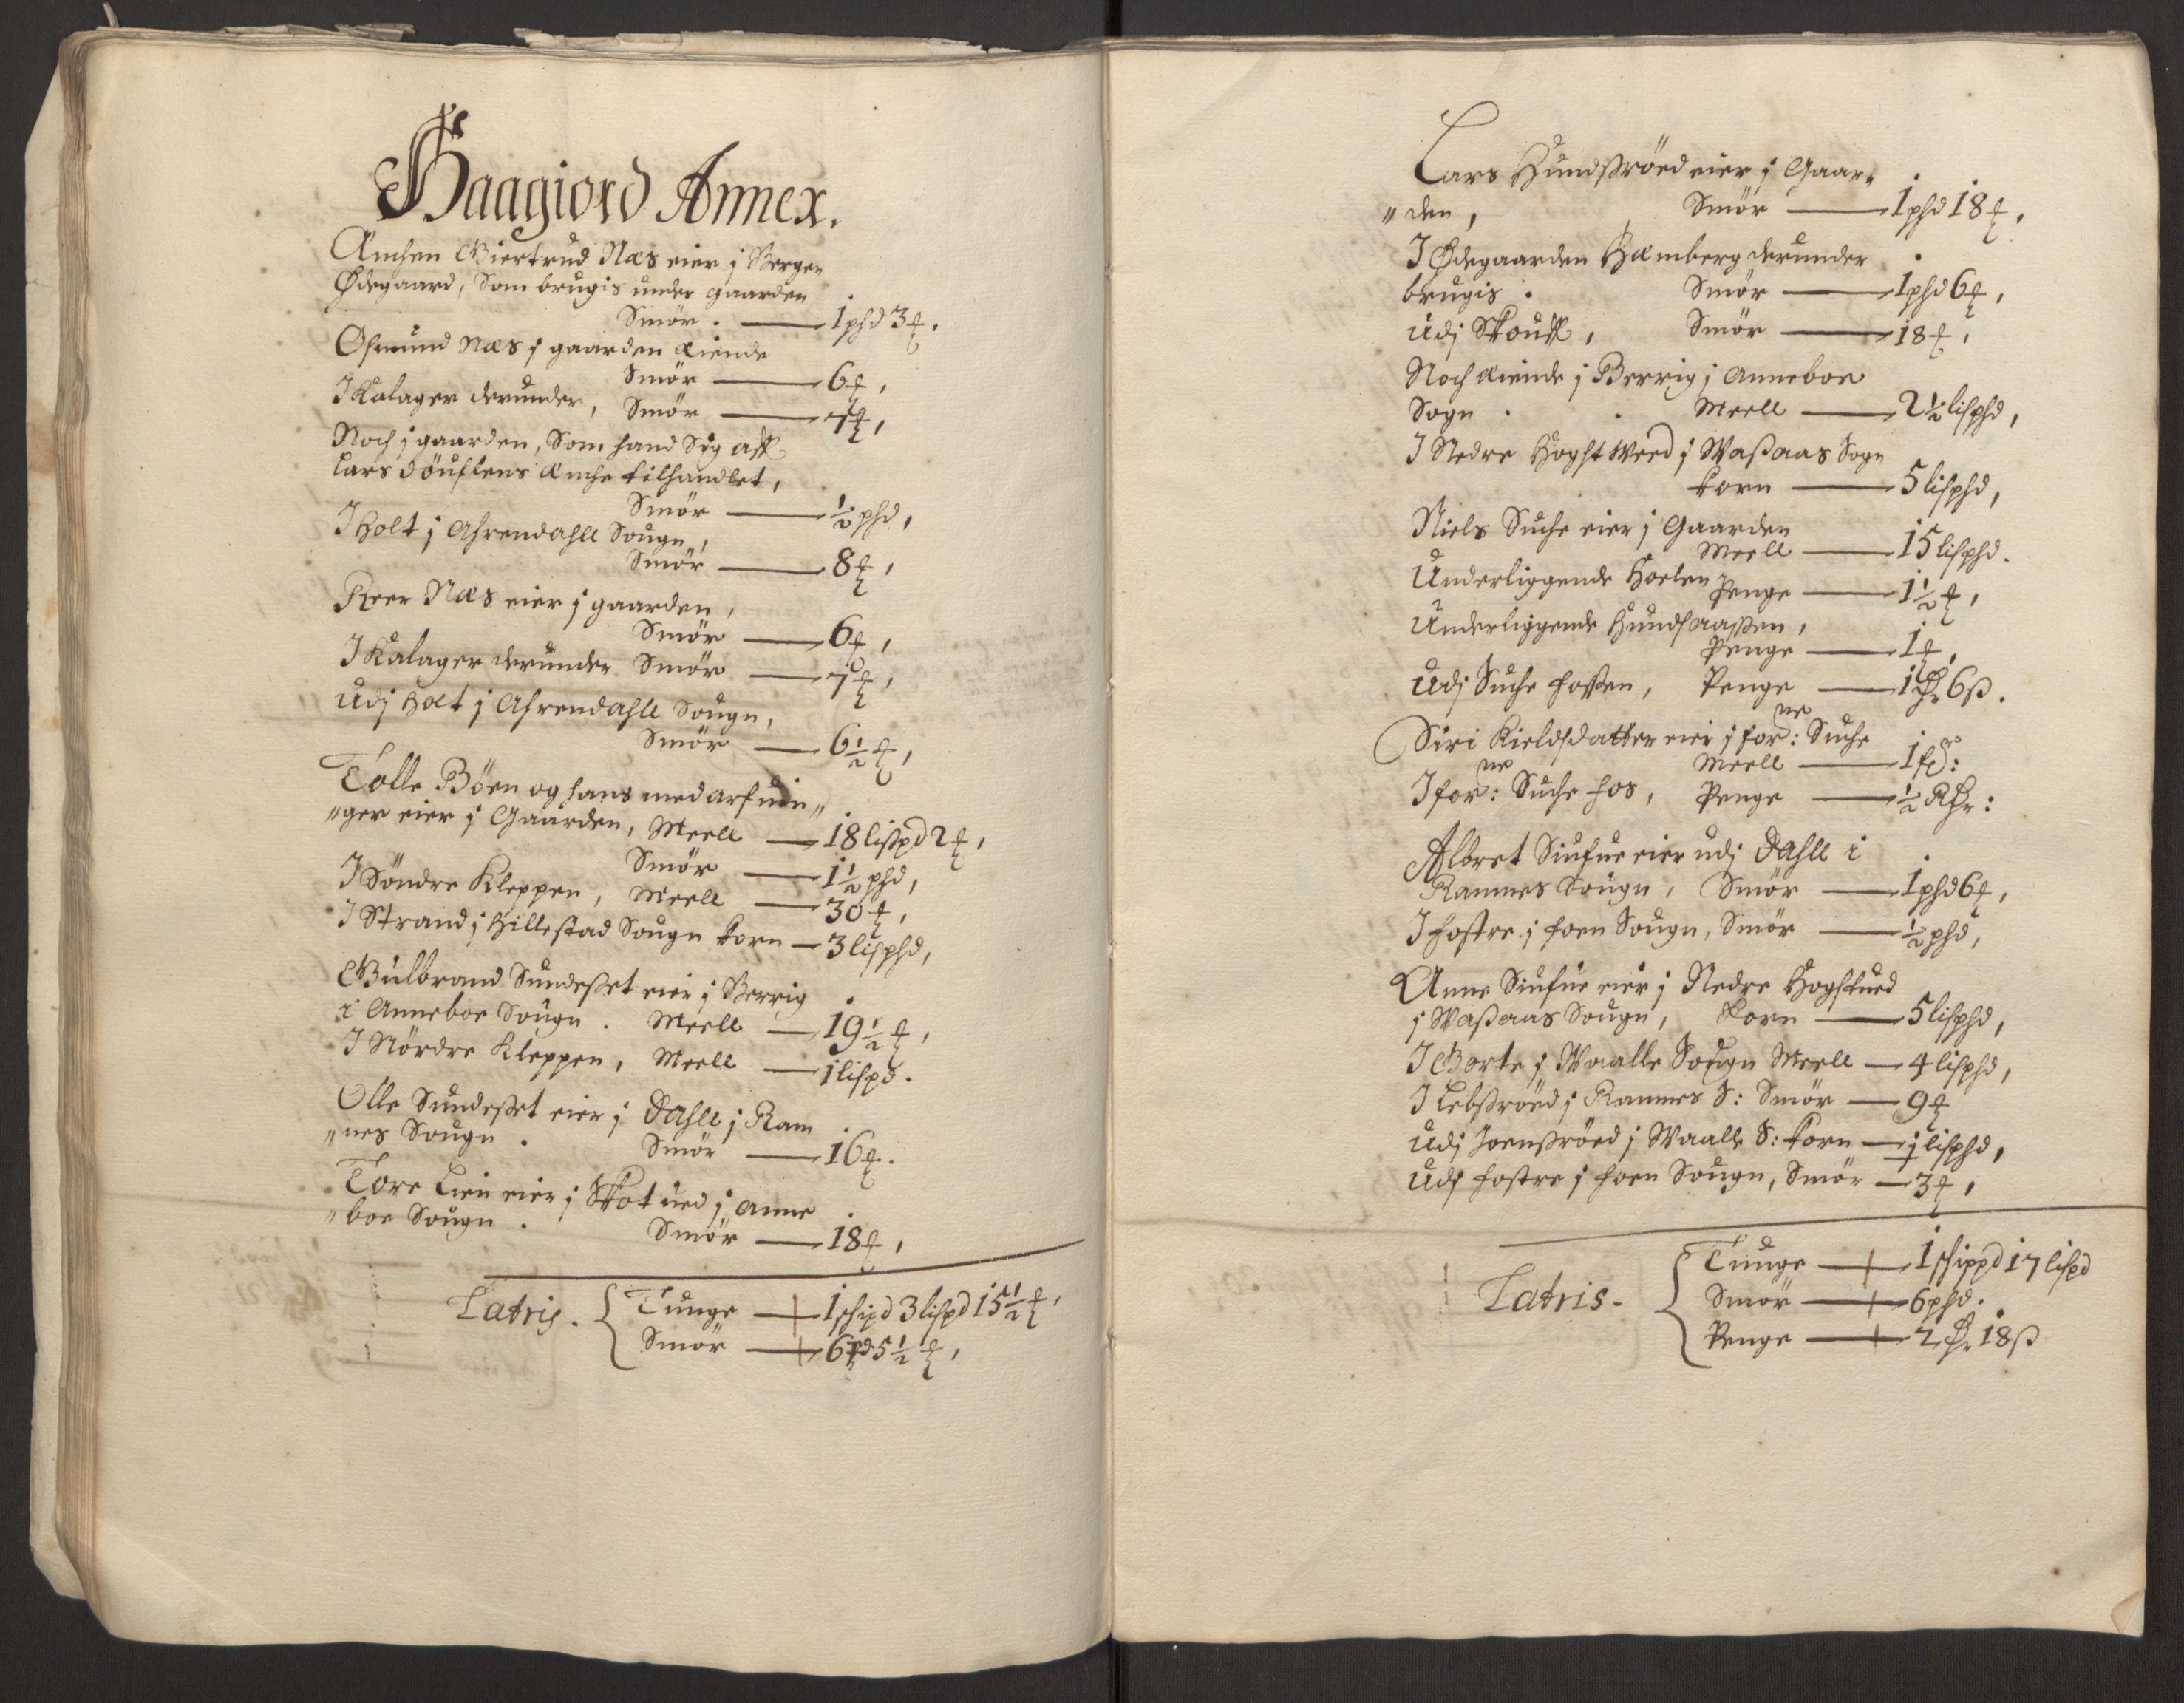 Haagiord Annex.
Enchen Giertrud Næs eier j Bergen
Ødegaard, Som brugis under gaarden
Smör. — 1 phd 3 ℔,
Osmund Næs j gaarden Eiende
Smör — 6 ℔,
J Kalager derunder, Smör — 7 ℔,
Noch j gaarden, Som hand Sig aff
Lars Döuflens Enche tilhandlet,
Smör — ½ phd,
J Holt j Ahrendahll Sougn,
Smör — 8 ℔,
Peer Næs eier j gaarden,
Smör — 6 ℔,
J Kalager derunder Smör — 7 ℔,
Udj Holt j Ahrendahll Sougn,
Smör — 6½ ℔,
Tolle Böen og hans medarfuin„
„ger eier j Gaarden, Meell — 18 lispd 2 ℔,
Smör — 1½ phd,
J Söndre Kleppen, Meell — 30 ℔,
J Strand j Hillestad Sougn Korn — 3 lisphd,
Gulbrand Sundesset eier j Berrig
i Anneboe Sougn. Meell — 19½ ℔,
J Nördre Kleppen, Meell — 1 lispd.
Olle Sundesset eier j Dahll j Ram
„nes Sougn. Smör — 16 ℔.
Tore Lien eier j Skotued j Anne
„boe Sougn. Smör — 18 ℔,
Latris. Tunge — 1 schipd 3 lispd 15½ ℔,
Smör — 6 pd 5½ ℔,
Lars Hundssröed eier j Gaar„
„den, Smör — 1 phd 18 ℔,
J Ødegaarden Hæmberg derunder
brugis. Smör — 1 phd 6 ℔,
Udj Skouff, Smör — 18 ℔,
Noch Eiende j Berrig j Anneboe
Sogn. Meell — 2½ lisphd,
J Nedre Hoghtweed j Wassaas Sogn
Korn — 5 lisphd,
Niels Suche eier j Gaarden
Meell — 15 lisphd.
Underliggende Hoelen Penge — 1½ ℔,
Underliggende Hundsaassen,
Penge — 1 ℔,
Udj Suche fossen, Penge — 1 ₻ 6 ß.
Siri Kieldsdatter eier j for:ne Suche
Meell — 1 fd:
J for:ne Suche fos, Penge — ½ Rdr:
Albret Siufue eier udj Dahll i
Ramnes Sougn, Smör — 1 phd 6 ℔,
J Fostre j Foen Sougn, Smör — ½ phd,
Anne Siufue eier j Nedre Hogstued
j Wassaas Sougn, Korn — 5 lisphd,
J Gorte j Waalle Sougn Meell — 4 lisphd,
J Lebssröed j Ramnes S: Smör — 9 ℔
Udj Joenssröed j Waalle S: Korn — 1 lisphd,
Udj Fostre j Foen Sougn, Smör — 3 ℔,
Latris. Tunge — 1 schippd 17 lispd
Smör — 6 phd.
Penge — 2 ₻ 18 ß